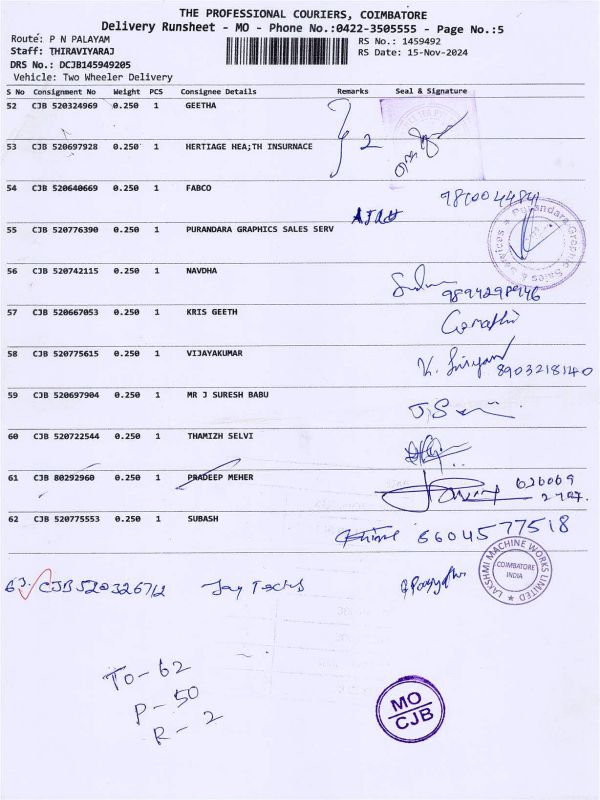 THE PROFESSIONAL COURIERS, COIMBATORE
Delivery Runsheet - MO - Phone No.:0422-3505555 - Page No.:5
Route: P N PALAYAM
RS No.: 1459492
Staff: THIRAVIYARAJ
RS Date: 15-Nov-2024
DRS No.: DCJB145949205
Vehicle: Two Wheeler Delivery
S No Consignment No Weight PCS Consignee Details Remarks Seal & Signature
52 CJB 520324969 0.250 1 GEETHA
2
53 CJB 520697928 0.250 1 HERTIAGE HEA;TH INSURNACE
54 CJB 520640669 0.250 1 FABCO
55 CJB 520776390 0.250 1 PURANDARA GRAPHICS SALES SERV
Purandara Graphic Sales & Services
56 CJB 520742115 0.250 1 NAVDHA
9894298946
57 CJB 520667053 0.250 1 KRIS GEETH
Gomathi
58 CJB 520775615 0.250 1 VIJAYAKUMAR
8903218140
59 CJB 520697904 0.250 1 MR J SURESH BABU
60 CJB 520722544 0.250 1 THAMIZH SELVI
61 CJB 80292960 0.250 1 PRADEEP MEHER
62 CJB 520775553 0.250 1 SUBASH
63. CJB 520326712 Jay Techs
LAKSHMI MACHINE WORKS LIMITED
COIMBATORE
INDIA
TO-62
P-50
R-2
MO
CJB